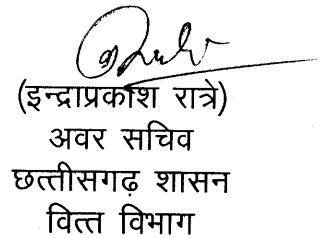 (इन्द्राप्रकाश रात्रे)
अवर सचिव
छत्तीसगढ़ शासन
वित्त विभाग